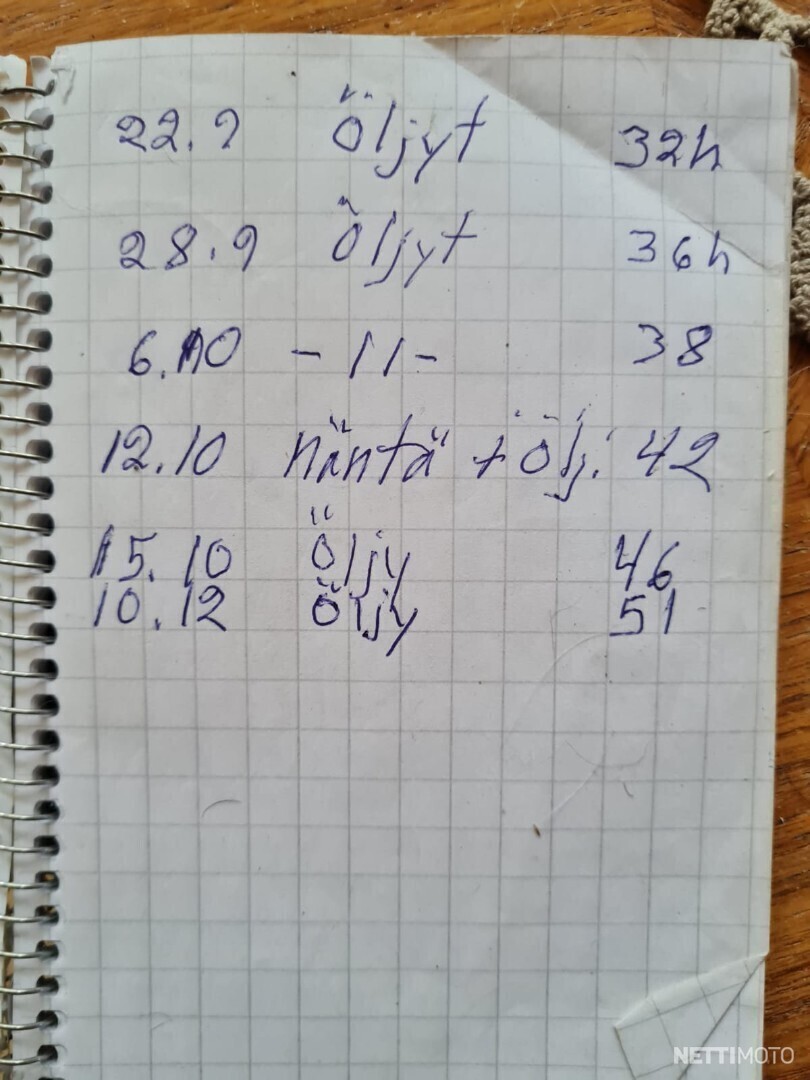 22.9 Öljyt 32h
28.9 Öljyt 36h
6.10 -11- 38
12.10 näntä + ölj. 42
15.10 Öljy 46
10.12 Öljy 51
NETTIMOTO